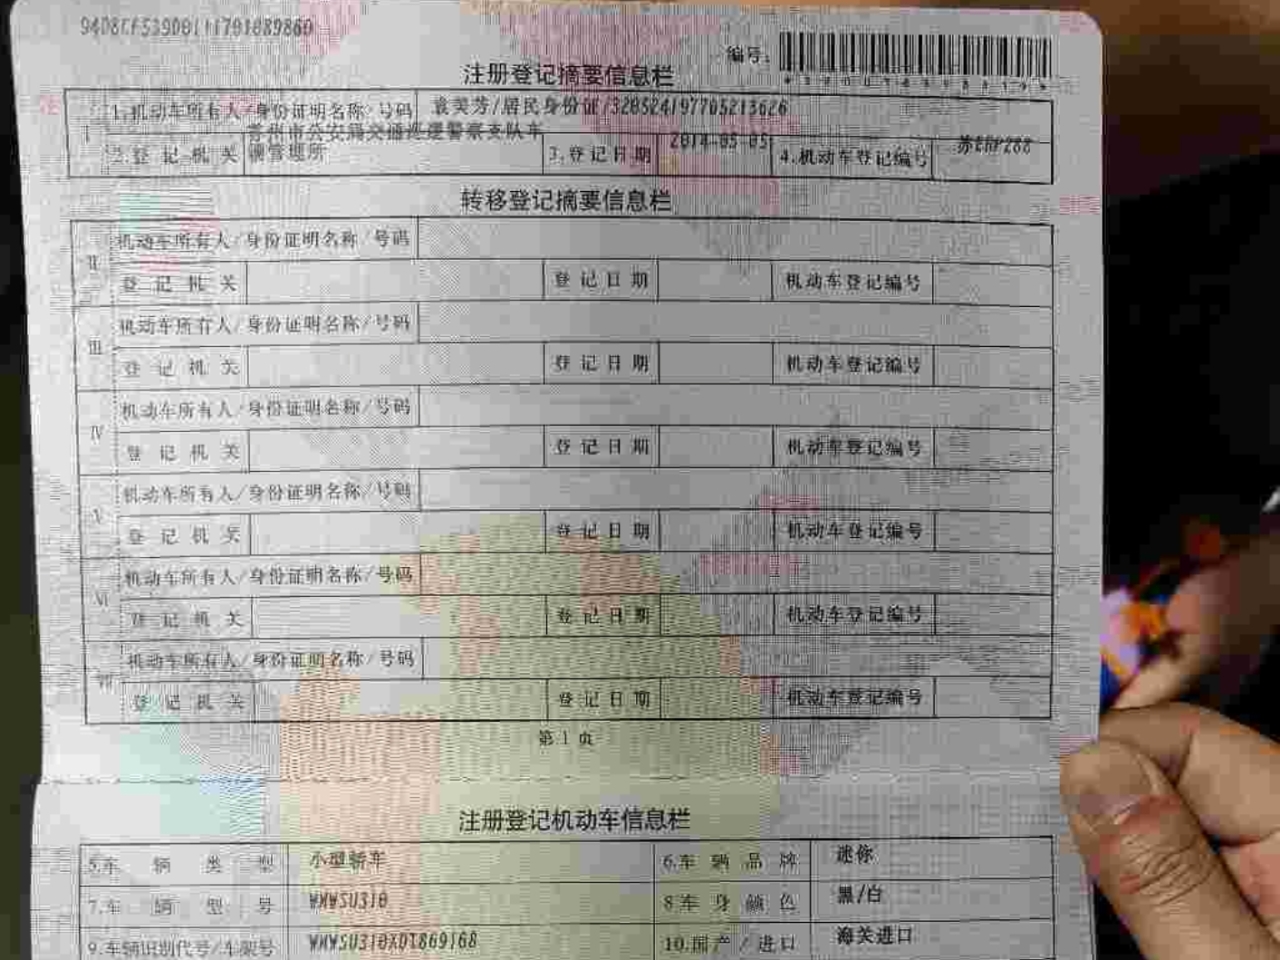 编号:
注册登记摘要信息栏
1.机动车所有人/身份证明名称/号码 袁美芳/居民身份证/
苏州市公安局交通巡逻警察支队车
2.登记机关 辆管理所 3.登记日期 2014-05-05 4.机动车登记编号
转移登记摘要信息栏
Ⅱ 机动车所有人/身份证明名称/号码
登记机关 登记日期 机动车登记编号
Ⅲ 机动车所有人/身份证明名称/号码
登记机关 登记日期 机动车登记编号
Ⅳ 机动车所有人/身份证明名称/号码
登记机关 登记日期 机动车登记编号
Ⅴ 机动车所有人/身份证明名称/号码
登记机关 登记日期 机动车登记编号
Ⅵ 机动车所有人/身份证明名称/号码
登记机关 登记日期 机动车登记编号
Ⅶ 机动车所有人/身份证明名称/号码
登记机关 登记日期 机动车登记编号
第1页
注册登记机动车信息栏
5.车辆类型 小型轿车 6.车辆品牌 迷你
7.车辆型号 WMWSU310 8.车身颜色 黑/白
9.车辆识别代号/车架号 10.国产/进口 海关进口